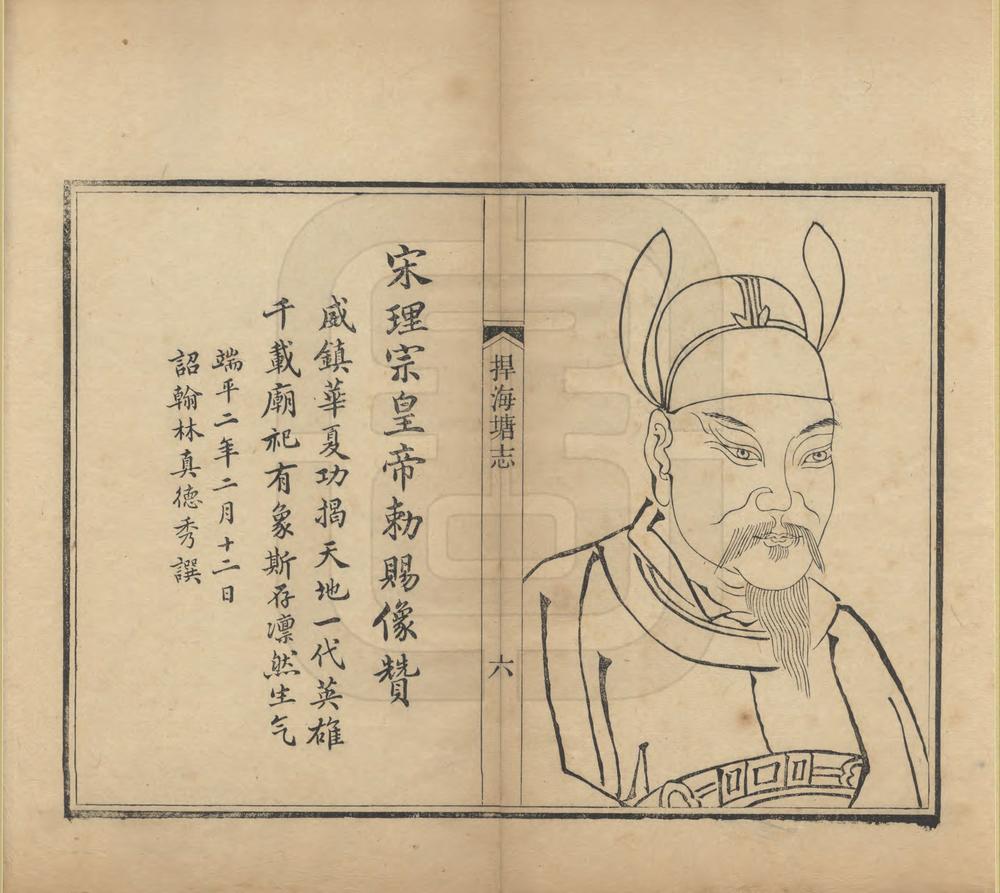 捍海塘志
六
宋理宗皇帝勅賜像贊
威鎮華夏功揭天地一代英雄
千載廟祀有象斯存凛然生气
端平二年二月十二日
詔翰林真德秀譔